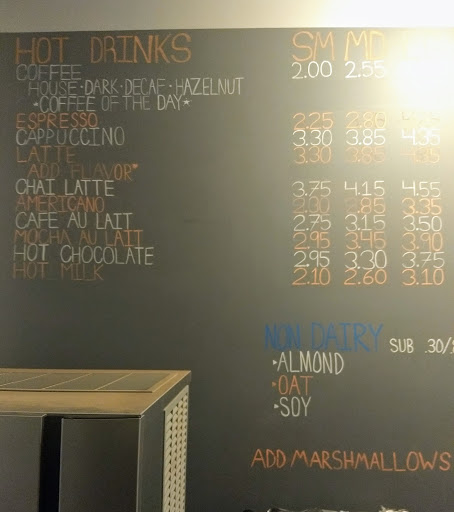 HOT DRINKS SM MD
COFFEE 2.00 2.55
HOUSE · DARK · DECAF · HAZELNUT
*COFFEE OF THE DAY*
ESPRESSO 2.25 2.80
CAPPUCCINO 3.30 3.85 4.35
LATTE 3.30 3.85 4.35
ADD FLAVOR
CHAI LATTE 3.75 4.15 4.55
AMERICANO 2.30 2.85 3.35
CAFE AU LAIT 2.75 3.15 3.50
MOCHA AU LAIT 2.95 3.45 3.90
HOT CHOCOLATE 2.95 3.30 3.75
HOT MILK 2.10 2.60 3.10
NON DAIRY SUB .30/
ALMOND
OAT
SOY
ADD MARSHMALLOWS